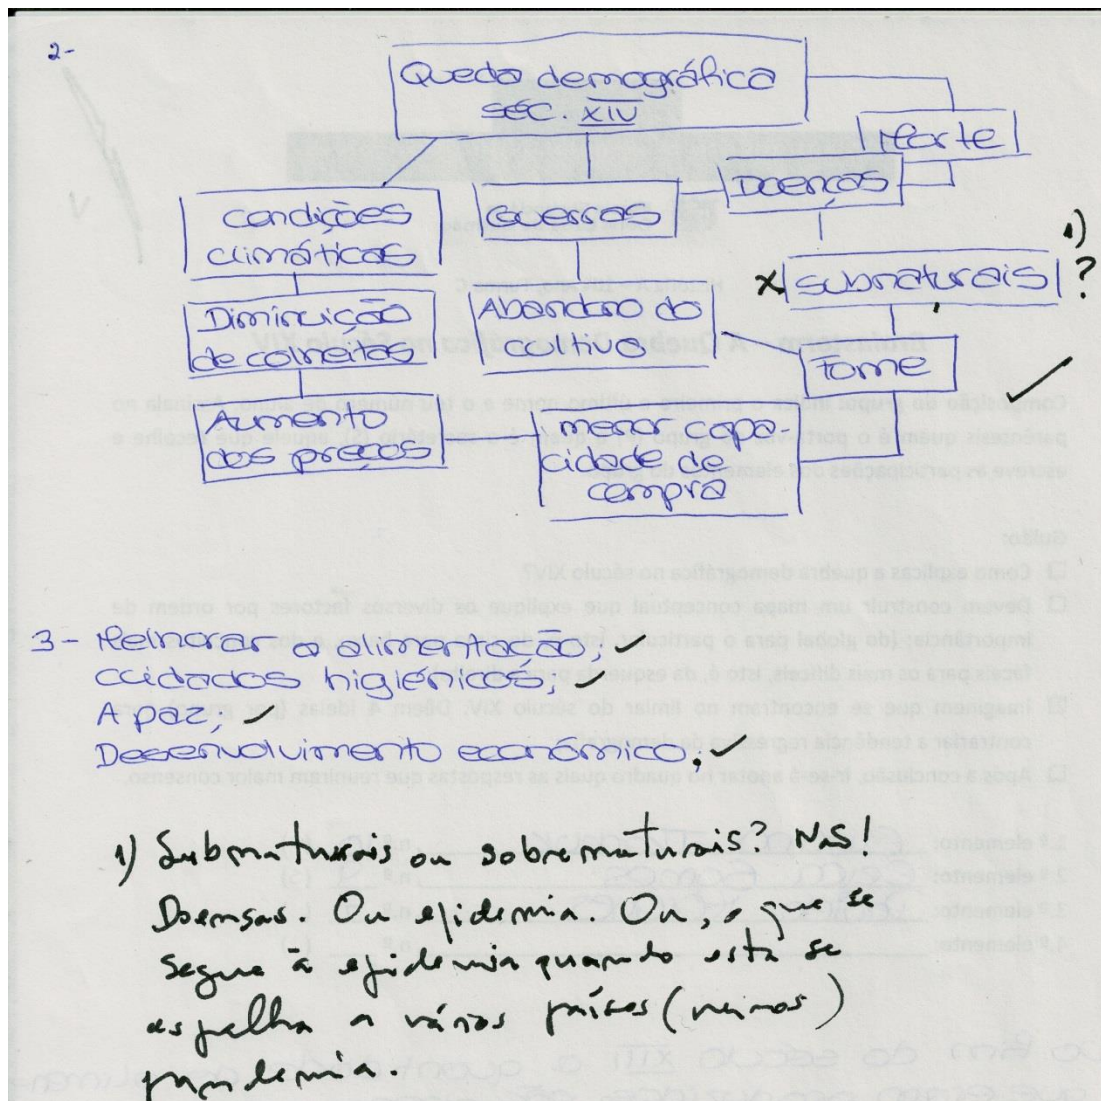 2-
Queda demográfica
séc. XIV
Morte
Doenças
condições
climáticas
Guerras
1)
x subnaturais ?
Diminuição
de colheitas
Abandono do
cultivo
fome
Aumento
dos preços
menor capa-
cidade de
compra
3- Melhorar a alimentação;
cuidados higiénicos;
A paz;
Desenvolvimento económico;
1) Subnaturais ou sobrenaturais? Não!
Doenças. Ou epidemia Ou, o que se
segue à epidemia quando esta se
espalha a vários países (reinos)
pandemia.